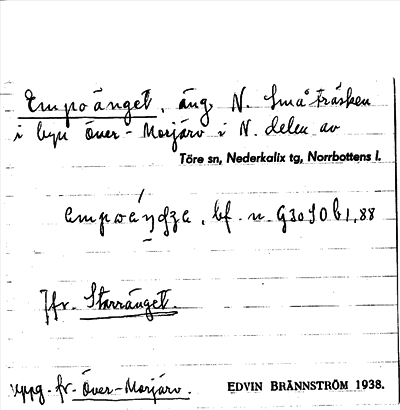 Empoänget, äng, N. Småträsken
i byn Över-Morjärv i N. delen av
Töre sn, Nederkalix tg, Norrbottens l.
bf. n.
Jfr. Starränget.
uppg. fr. Över-Morjärv. EDVIN BRÄNNSTRÖM 1938.